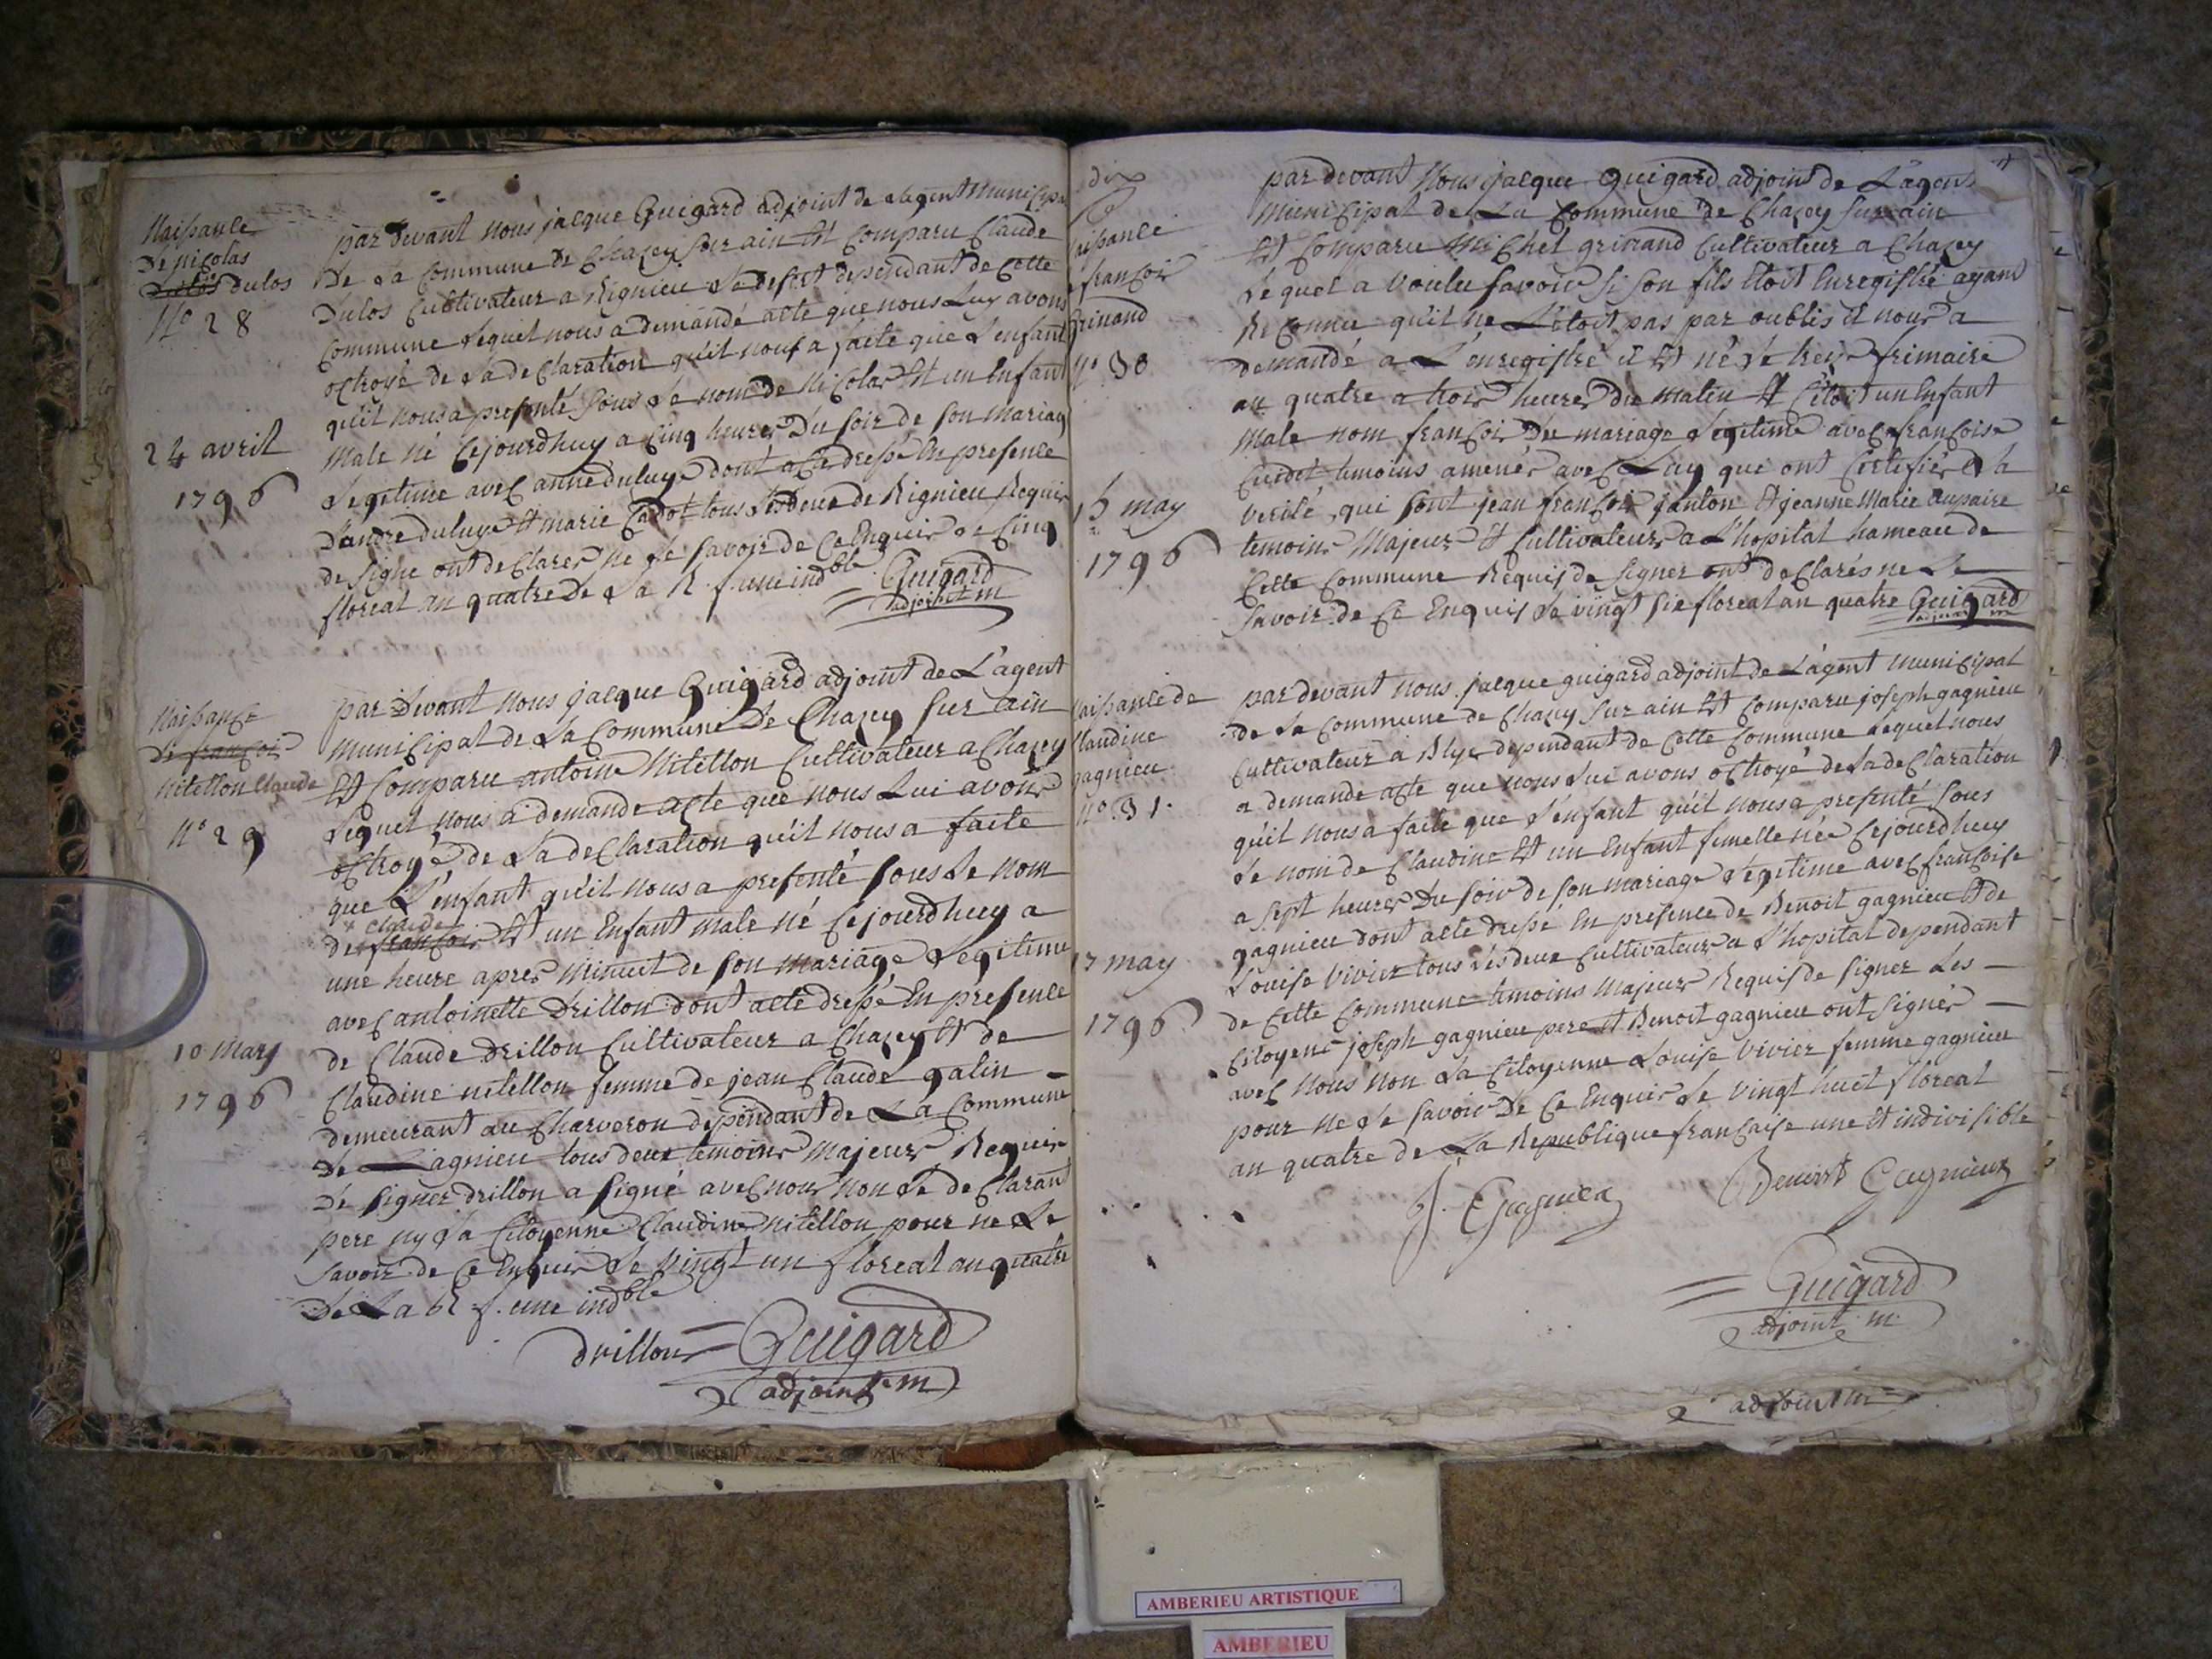 Naissance
de nicolas
dulos
N° 28
24 avril
1796
par devant nous jacque Guigard adjoint de Lagent Municipa
de La Commune de Chazey sur ain Est Comparu Claude
Dulos Cultivateur a Rignieu Le desert dependant de Cette
Commune Lequel nous a demandé acte que nous Luy avons
octroyé de La deClaration qu'il nous a faite que L'enfant
qu'il nous a presenté sous Le nom de NiColas Est un Enfant
Male né Cejourdhuy a Cinq heures Du soir de son Mariag
Legitime avec anne duluye dont acte dressé En presence
d'andré duluye Et marie Cadot tous Les deux de Rignieu Requis
de signe ont deClares ne Le savoir de Ce Enquis Le Cinq
floreal an quatre de La R. f. une ind.ble Guigard
adjoint m
Naissance
de françois
nitellon Claude
N° 29
10 May
1796
par Devant nous jacque Guigard adjoint de L'agent
MuniCipal de La Commune de Chazey sur ain
Est Comparu antoine Nitellon Cultivateur a Chazey
Lequel nous a demande acte que nous Lui avons
oCtroyé de La deClaration qu'il nous a faite
que L'enfant qu'il nous a presenté sous Le nom
Claude
de françois Est un Enfant Male né Cejourdhuy a
une heure apres Minuit de son Mariage Legitime
aveC antoinette Drillon dont acte dressé En presence
de Claude Drillon Cultivateur a Chazey Et de
Claudine nitellon femme de jean Claude galin
demeurant au Charveron dependant de La Commune
de Lagnieu tous deux temoins Majeurs Requis
de signer drillon a signé aveC nous non Le deClarant
pere ny La Citoyenne Claudine nitellon pour ne Le
savoir de Ce Enquis Le vingt un floreal an quatre
de La R. f. une ind.ble
drillon Guigard
adjoint m
dix
aissance
e françois
Grinand
N° 30
15 may
1796
par devant Nous jacque Guigard adjoint de L'agent
MuniCipal de La Commune de Chazey sur ain
Est Comparu MiChel grinand Cultivateur a Chazey
Lequel a voulu savoir si son fils Etoit Enregistré ayant
ReConnu qu'il ne L'étoit pas par oublis il nous a
demandé a L'enregistré il Est né Le treize frimaire
an quatre a trois heures du Matin Et C'étoit un Enfant
Male nom françois Du mariage Legitime aveC françoise
Cuidet temoins amenés aveC Luy qui ont Certifiés La
verité, qui sont jean françois janton Et jeanne Marie
temoins Majeurs Et Cultivateurs a L'hopital hameau de
Cette Commune Requis de signer ont deClarés ne Le
savoir de Ce Enquis Le vingt six floreal an quatre Guigard
adjoint m
aissance de
Claudine
gagnieu
N° 31.
17 may
1796
par devant nous jacque guigard adjoint de L'agent MuniCipal
de La Commune de Chazey sur ain Est Comparu joseph gagnieu
Cultivateur a Blye dependant de Cette Commune Lequel nous
a demande acte que nous Lui avons oCtroyé de La deClaration
qu'il nous a faite que L'enfant qu'il nous a presenté sous
Le nom de Claudine Est un Enfant femelle née Cejourdhuy
a sept heures Du soir de son mariage Legitime aveC françoise
gagnieu dont acte dressé En presence de Benoit gagnieu Et de
Louise Vivier tous Les deux Cultivateurs a L'hopital dependant
de Cette Commune temoins Majeurs Requis de signer Les
Citoyens joseph gagnieu pere Et Benoit gagnieu ont signés
aveC nous non La Citoyenne Louise Vivier femme gagnieu
pour ne Le savoir De Ce Enquis Le vingt huit floreal
an quatre de La Republique française une Et indivisible
J. Gagnieu Benoist Gagnieux
Guigard
adjoint m
adjoint m
AMBERIEU ARTISTIQUE
AMBERIEU